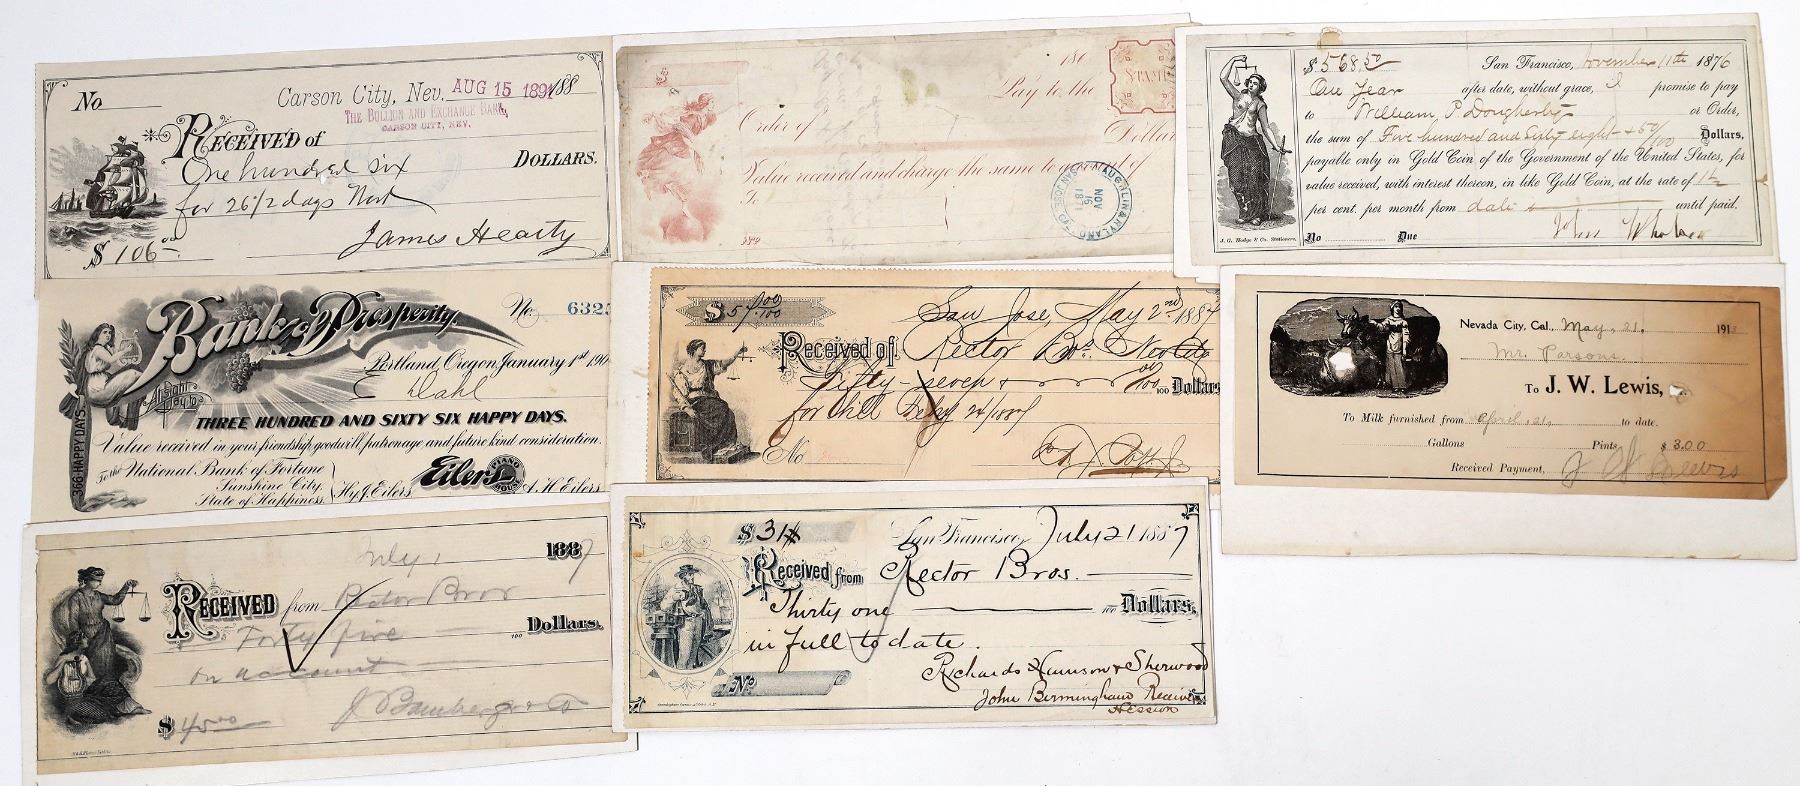 No
Carson City, Nev. AUG 15 1891 188
THE BULLION AND EXCHANGE BANK,
CARSON CITY, NEV.
RECEIVED of
One hundred six DOLLARS.
for 26 1/2 days Work
$106.00
James Hearty
186
Pay to the
STAMP
Order of
Dollars
Value received and charge the same to account of
To
NOV
16
1871
$568.50 San Francisco, November 11th 1876
One Year after date, without grace, I promise to pay
to William P. Dougherty or Order,
the sum of Five hundred and Sixty eight + 50/100 Dollars,
payable only in Gold Coin of the Government of the United States, for
value received, with interest thereon, in like Gold Coin, at the rate of 1 1/2
per cent. per month from date until paid.
No Due
John
J. G. Hodge & Co. Stationers.
Bank of Prosperity.
No. 6325
Portland, Oregon, January 1st 190
At Sight
Pay to
Dahl
THREE HUNDRED AND SIXTY SIX HAPPY DAYS.
Value received in your friendship, goodwill, patronage and future kind consideration.
To the National Bank of Fortune
Sunshine City,
State of Happiness.
Hy. J. Eilers
Eilers PIANO HOUSE
A. H. Eilers
366-HAPPY DAYS-
$57.00/100
San Jose, May 2nd 1887
Received of Rector Bros.
Fifty-seven & 00/100 Dollars
for
No
Nevada City, Cal., May, 21, 191
Mr. Parsons.
To J. W. Lewis,
To Milk furnished from April, 21, to date.
Gallons Pints $ 3.00
Received Payment, J W Lewis
July 1 1887
RECEIVED from Rector Bros
Forty five 100 Dollars.
on account
$45.00
J Bamberger & Co
$31 San Francisco, July 21 1887
Received from Rector Bros.
Thirty one 100 Dollars.
in full to date.
No
Richards Harrison & Sherwood
John Birmingham Receiver
Hession